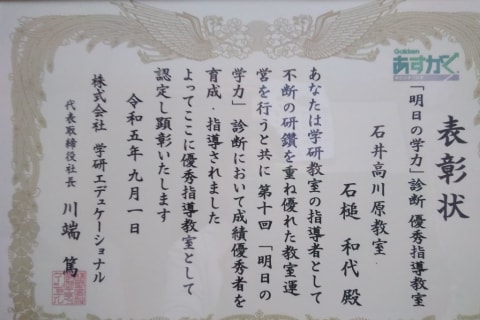 表彰状
Gakken
あすがく
「明日の学力」診断 優秀指導教室
石井高川原教室
石槌 和代 殿
あなたは学研教室の指導者として
不断の研鑽を重ね優れた教室運
営を行うと共に 第十回 「明日の
学力」 診断において成績優秀者を
育成・指導されました
よってここに優秀指導教室として
認定し顕彰いたします
令和五年九月一日
株式会社 学研エデュケーショナル
代表取締役社長 川端 篤